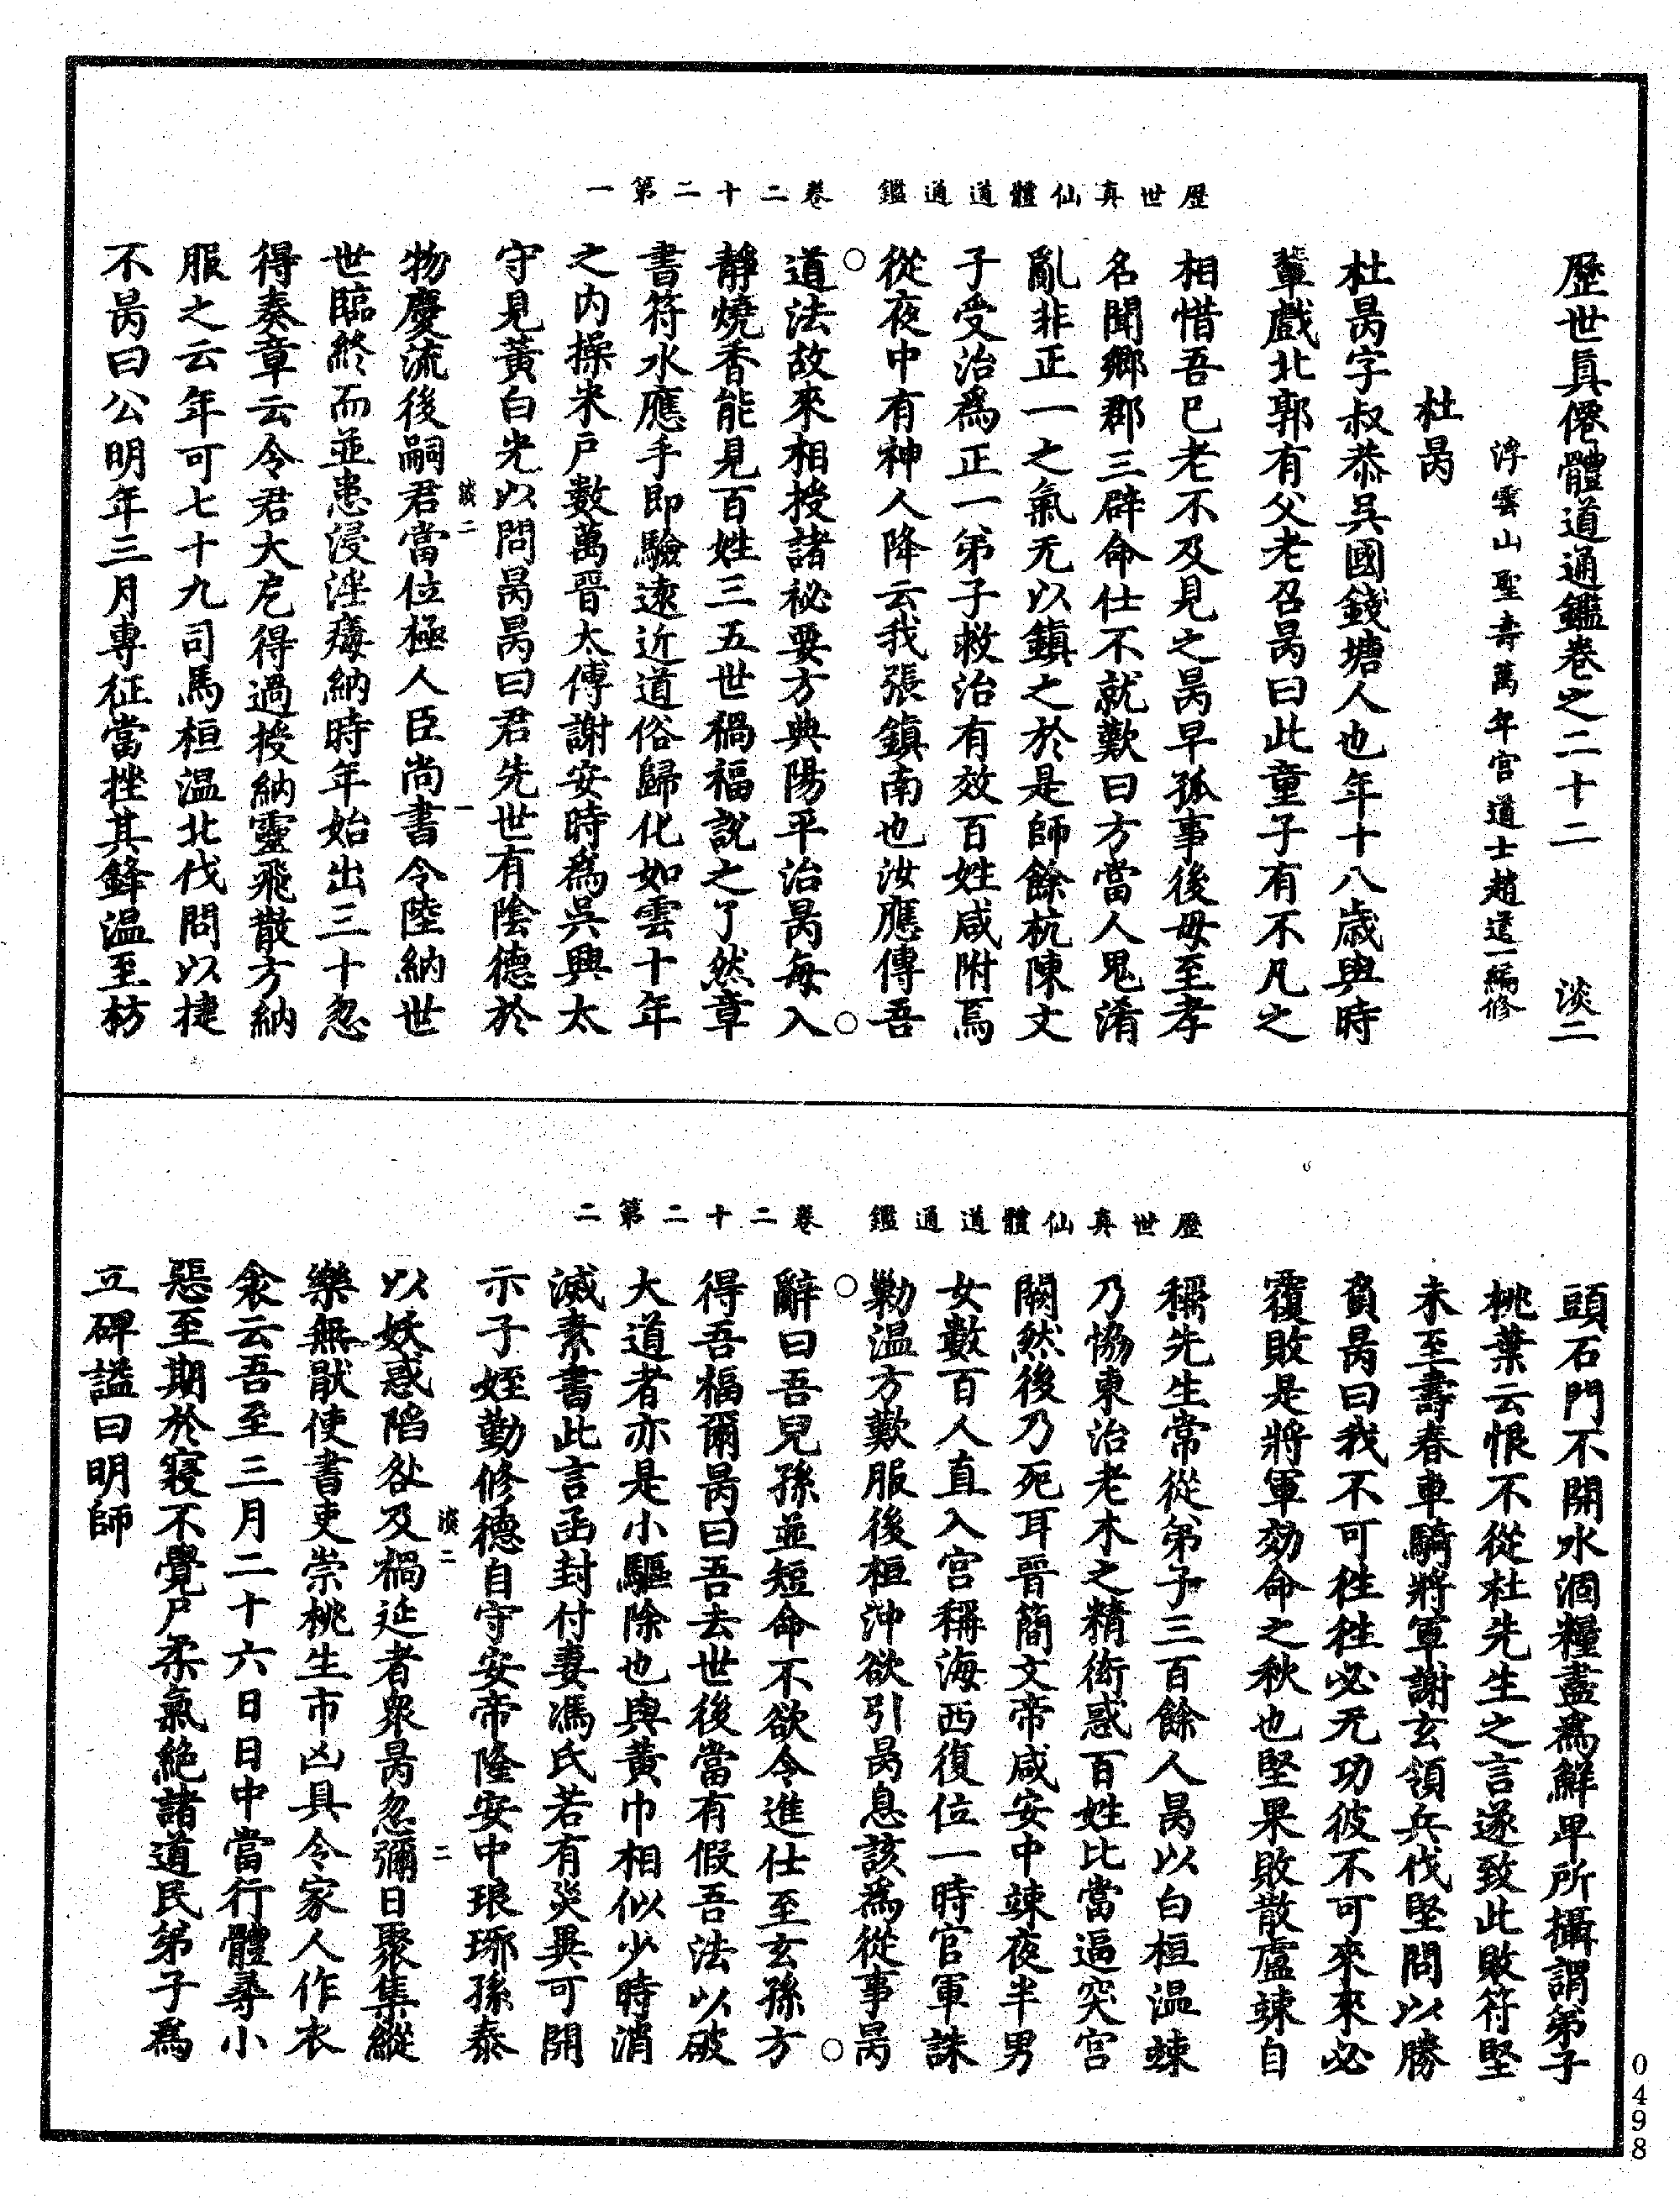 歷世真仙體道通鑑　卷二十二第一
歷世眞僊體道通鑑卷之二十二　淡二
浮雲山聖壽萬年宮道士趙道一編修
杜昺
杜昺字叔恭吳國錢塘人也年十八歲與時
輩戲北郭有父老召昺曰此童子有不凡之
相惜吾已老不及見之昺早孤事後母至孝
名聞鄉郡三辟命仕不就歎曰方當人鬼淆
亂非正一之氣无以鎮之於是師餘杭陳文
子受治爲正一弟子救治有效百姓咸附焉
從夜中有神人降云我張鎮南也汝應傳吾
道法故來相授諸祕要方典陽平治昺每入
靜燒香能見百姓三五世禍福說之了然章
書符水應手即驗遠近道俗歸化如雲十年
之內操米戶數萬晉太傅謝安時爲吳興太
守見黃白光以問昺昺曰君先世有陰德於
淡二　一
物慶流後嗣君當位極人臣尚書令陸納世
世臨終而並患浸淫瘺納時年始出三十忽
得奏章云令君大庀得過授納靈飛散方納
服之云年可七十九司馬桓温北伐問以捷
不昺曰公明年三月專征當挫其鋒温至枋
歷世真仙體道通鑑　卷二十二第二
頭石門不開水涸糧盡爲鮮卑所攝謂弟子
桃葉云恨不從杜先生之言遂致此敗符堅
未至壽春車騎將軍謝玄領兵伐堅問以勝
負昺曰我不可徃徃必无功彼不可來來必
覆敗是將軍効命之秋也堅果敗散盧竦自
稱先生常從弟子三百餘人昺以白桓温竦
乃恊東治老木之精衒惑百姓比當逼突宮
闕然後乃死耳晉簡文帝咸安中竦夜半男
女數百人直入宮稱海西復位一時官軍誅
勦温方歎服後桓沖欲引昺息該爲從事昺
辭曰吾兒孫並短命不欲令進仕至玄孫方
得吾福爾昺曰吾去世後當有假吾法以破
大道者亦是小驅除也與黃巾相似少時消
滅素書此言函封付妻馮氏若有災異可開
示子姪勤修德自守安帝隆安中琅琊孫泰
淡二　二
以妖惑陷咎及禍延者衆昺忽彌日聚集縱
樂無猒使書吏崇桃生市凶具令家人作衣
衾云吾至三月二十六日日中當行體尋小
惡至期於寢不覺尸柔氣絕諸道民弟子爲
立碑謚曰明師
0498